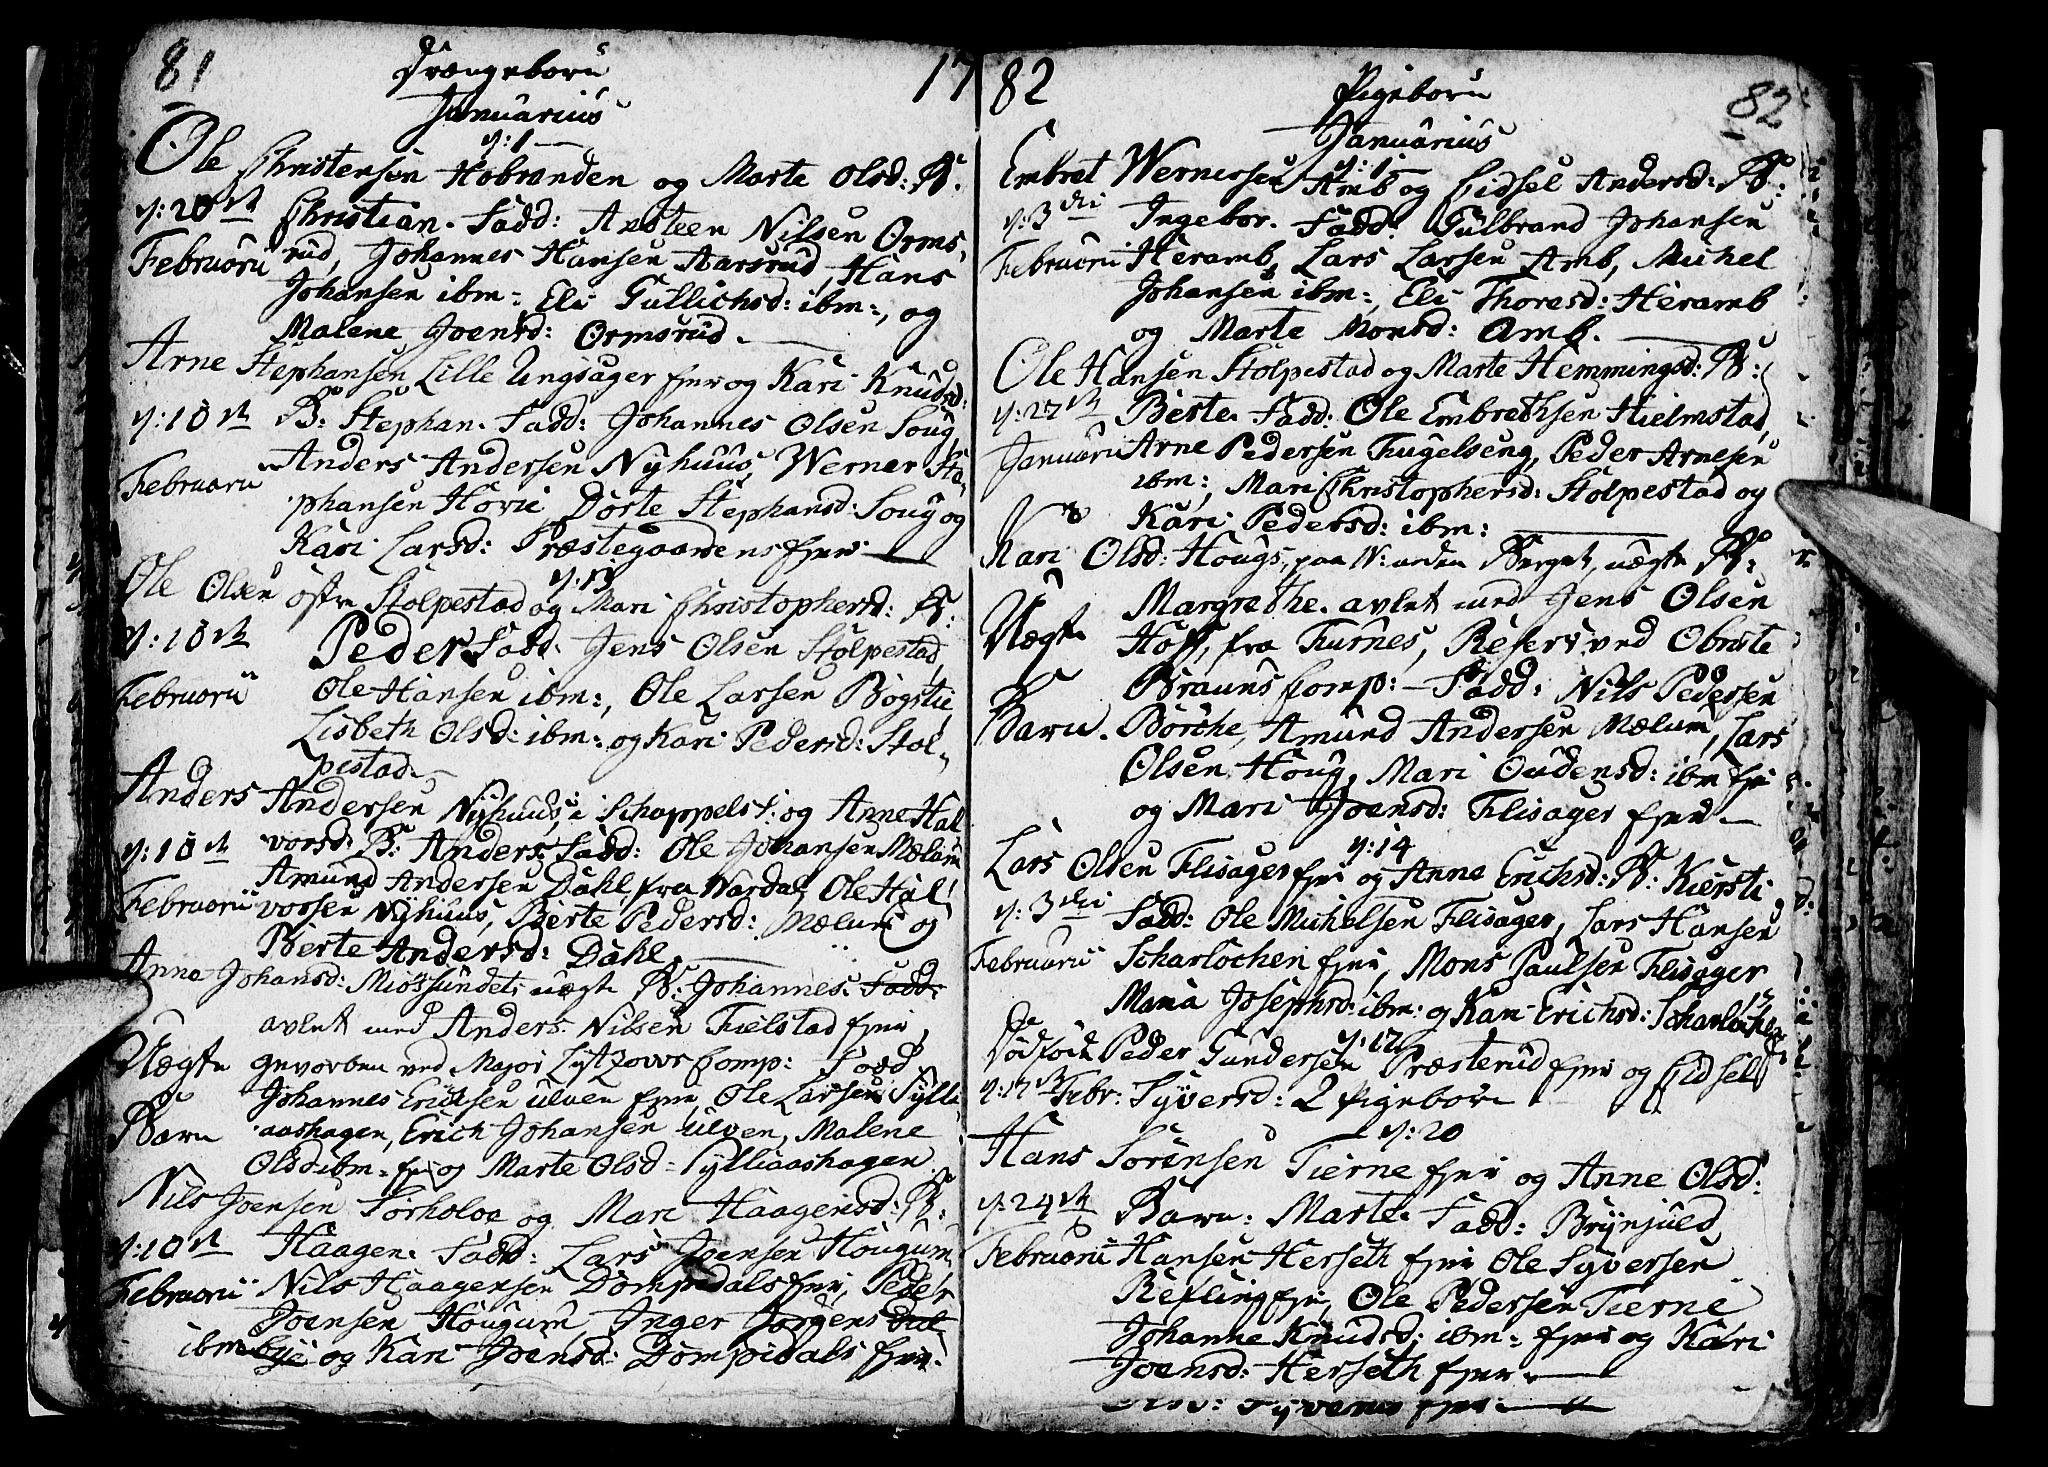 81 Drængebørn 17
Januarius
d: 1
Ole Christensen Hobranden og Marte Olsd: B.
d: 20de Christian. Fadd: Axsteen Nilsen Orms,,
Februarii rud, Johannes Hansen Aarsrud, Hans
Johansen ibm:, Eli Gullichsd: ibm:, og
Malene Joensd: Ormsrud.
Arne Stephansen Lille Ungsager ejer og Kari Knudsd:
d: 10de B: Stephan. Fadd: Johannes Olsen Soug,
Anders Andersen Nyhuus, Werner Ste,,
Februarii phansen Hovie, Dorte Stephansd: Soug og
Kari Larsd: Præstegaardens ejer.
d: 13
Ole Olsen østre Stolpestad og Mari Christophersd: B:
d: 10de Peder. Fadd. Jens Olsen Stolpestad,
Februarii Ole Hansen ibm:, Ole Larsen Bøgstie,
Lisbeth Olsd: ibm: og Kari Pedersd: Stol,,
pestad.
Anders Andersen Nyhuus, i og Anne Hal
d: 10de vorsd: B: Anders. Fadd: Ole Johansen Mælum
Amund Andersen Dahl fra Wardal, Ole Hal
Februarii vorsen Nyhuus, Berte Pedersd: Mælum og
Berte Andersd: Dahl.
Anne Johansd: Miøssundet: uægte B: Johannes. Fadd:
avlet med Anders Nilsen Fielstad ejer,
Uægte gevorben ved Major Lytzows Comp: Fadd
Johannes Erichsen Ulven ejer, Ole Larsen Sylli
Barn aashagen, Erich Johansen Ulven, Malene
Olsd ibm: ejer og Marte Olsd: Sylliaashagen
Nils Joensen Sørholoe og Mari Haagensd: B:
d: 10de Haagen. Fadd: Lars Joensen Hougum
Februarii Nils Haagensen Dompidals ejer, Peder
Joensen Hougum, Inger Jørgens dat
ibm bye og Kari Joensd: Dompidals ejer.
82 Pigebørn 82
Januarius
d: 1
Embret Wernersen Amb og Eidsel Andersd: B:
d: 3die Ingebor. Fadd: Gulbrand Johansen
Februarii Heramb, Lars Larsen Amb, Michel
Johansen ibm:, Eli Thoresd: Heramb
og Marte Monsd: Amb.
Ole Hansen Stolpestad og Marte Hemmingsd: B:
d: 27de Berte. Fadd: Ole Embrethsen Hielmstad,
Januarii Arne Pedersen Fugelseng, Peder Arnesen
ibm:, Mari Christophersd: Stolpestad og
Kari Pedersd: ibm:
Kari Olsd: Hougs, paa Berget, uægte B:
Margrethe. avlet med Jens Olsen
Uægte Hoff, fra Furnes, Reserv: ved Obriste
Brauns Comp: – Fadd: Nils Pedersen
Barn. Børche, Amund Andersen Mælum, Lars
Olsen Houg, Mari Oudensd: ibm ejer
og Mari Joensd: Flisager ejer.
d: 14
Lars Olsen Flisager ejer og Anne Erichsd: B: Kiersti,
d: 3die Fadd: Ole Michelsen Flisager, Lars Hansen
Februarii Scharlochen ejer, Mons Paulsen Flisager
Maria Josephsd: ibm: og Kari Erichsd: Scharlochen
d: 17
Dødfødt Peder Gundersen Præsterud ejer og Eidsel
d: 17de Febr: Syversd: 2 Pigebørn
d: 20
Hans Sørensen Tierne ejer og Anne Olsd:
d: 24de Barn: Marte. Fadd: Brynjueld
Februarii Hansen Herseth ejer Ole Syversen
Refling ejer, Ole Pedersen Tierne
Johanne Knudsd: ibm: ejer og Kari
Joensd: Herseth ejer.